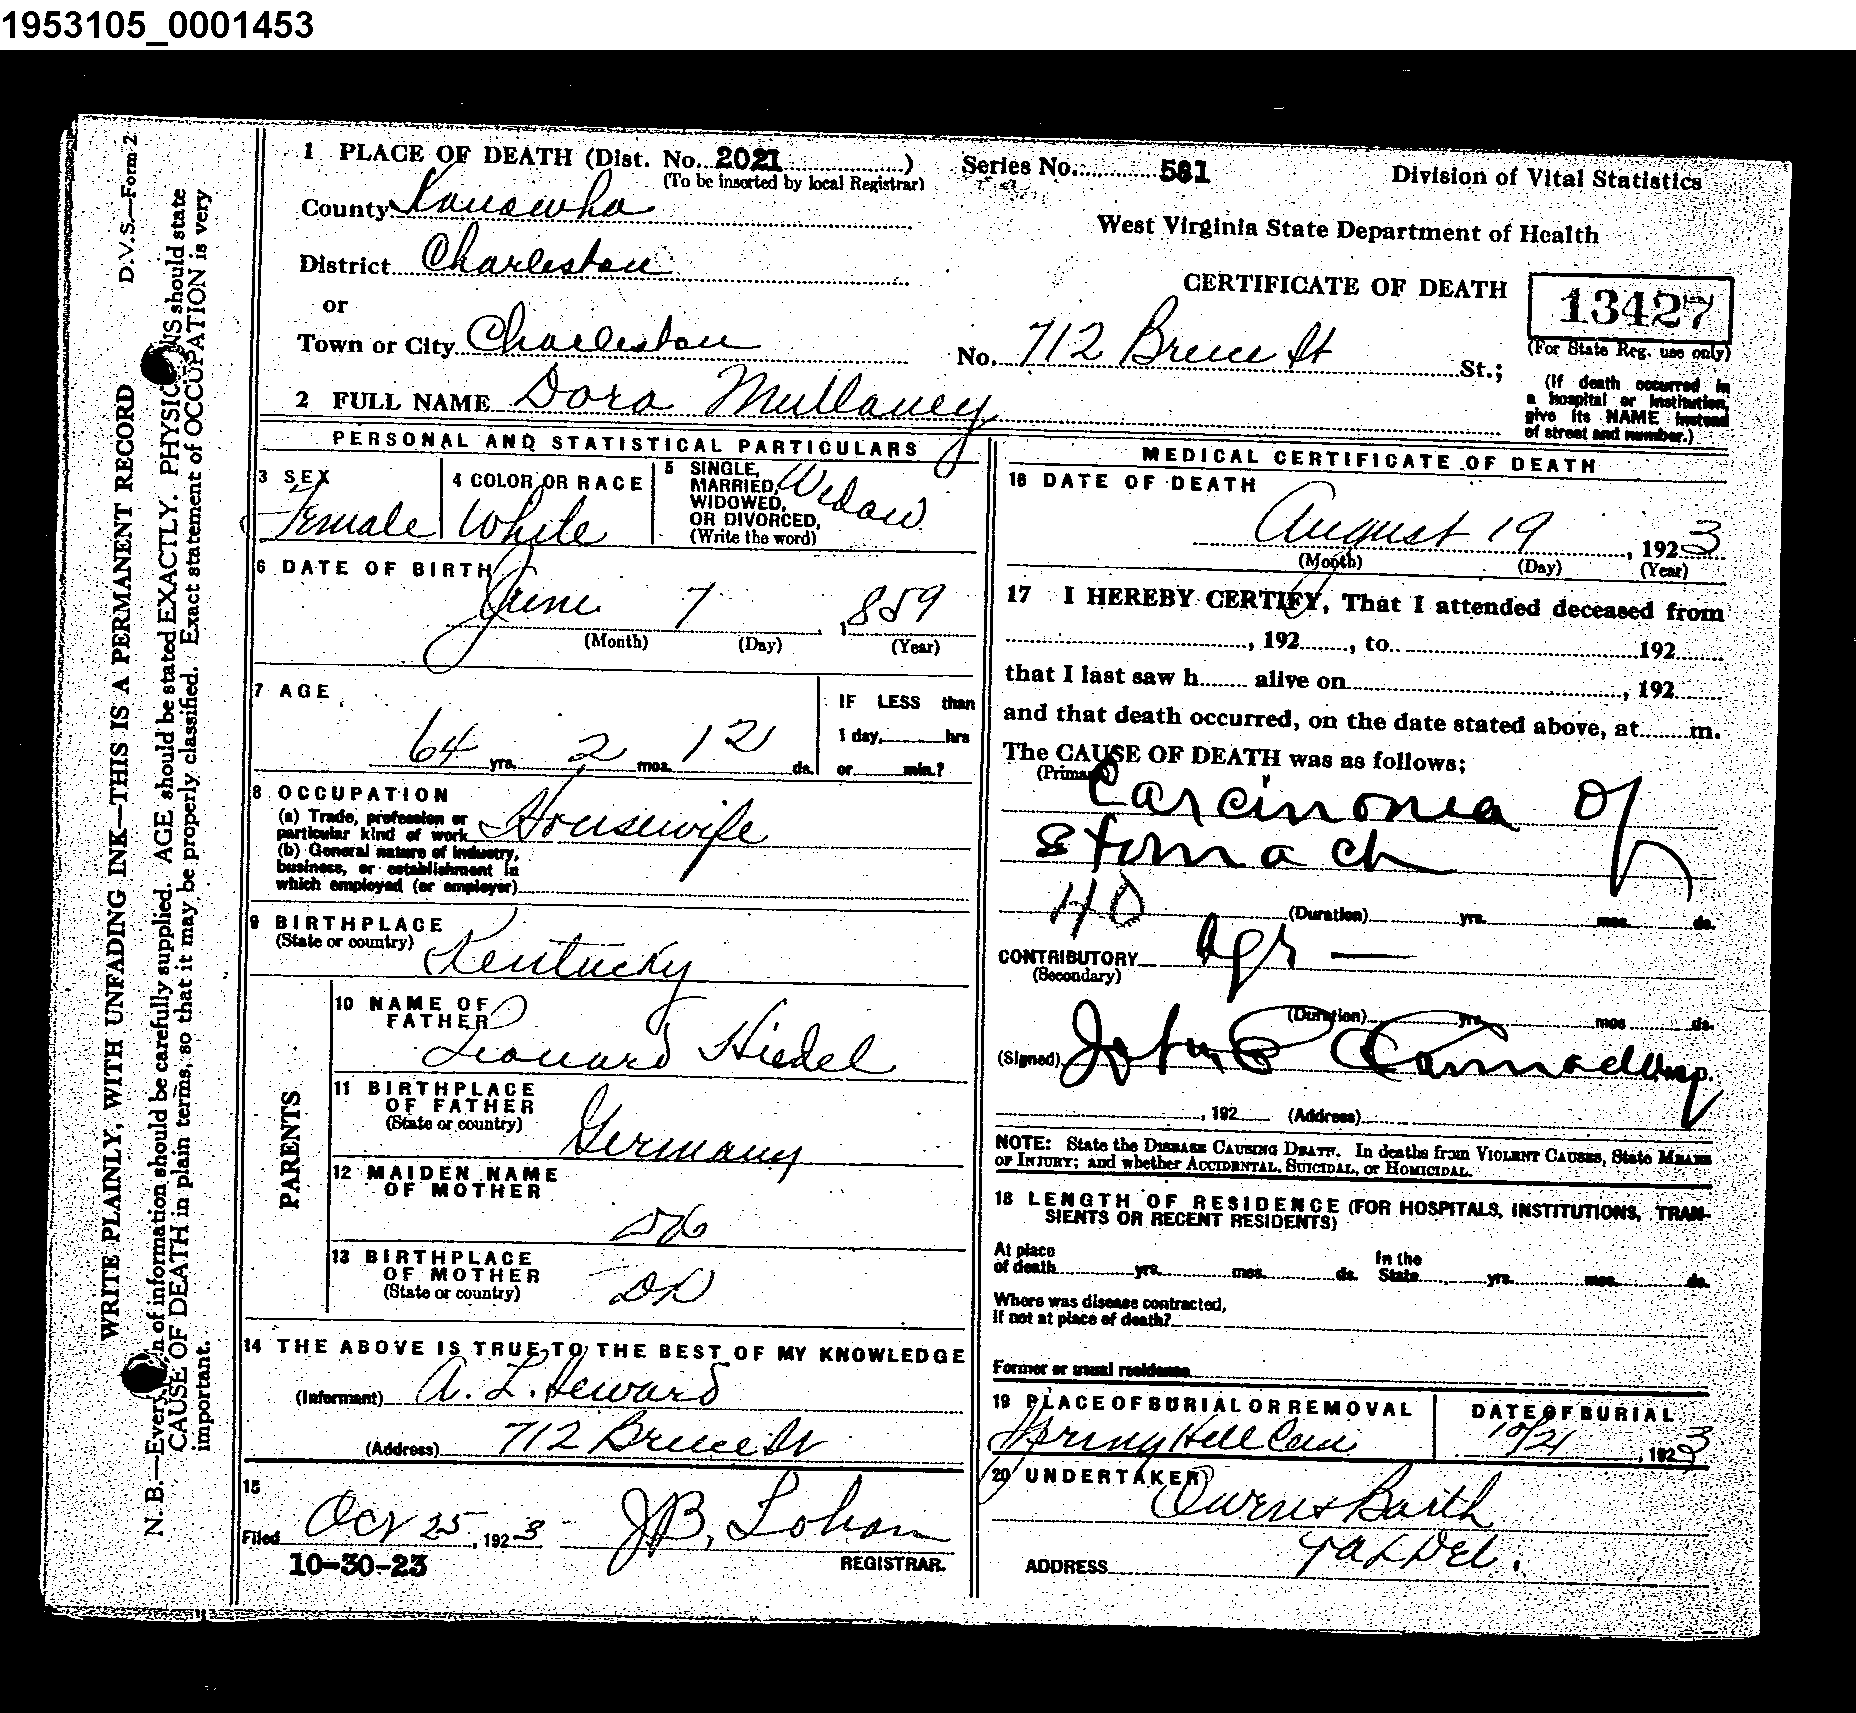 1953105_0001453
D.V.S.—Form 2
WRITE PLAINLY, WITH UNFADING INK—THIS IS A PERMANENT RECORD
N. B.—Every of information should be carefully supplied. AGE should be stated EXACTLY. PHYSIC NS should state
CAUSE OF DEATH in plain terms, so that it may be properly classified. Exact statement of OCCUPATION is very
important.
1 PLACE OF DEATH (Dist. No. 2021)
(To be inserted by local Registrar)
County Kanawha
District Charleston
or
Town or City Charleston
Series No. 581
Division of Vital Statistics
West Virginia State Department of Health
CERTIFICATE OF DEATH
13427
(For State Reg. use only)
No. 712 Bruce St St.;
(If death occurred in
a hospital or institution,
give its NAME instead
of street and number.)
2 FULL NAME Dora Mullaney
PERSONAL AND STATISTICAL PARTICULARS
3 SEX
Female
4 COLOR OR RACE
White
5 SINGLE,
MARRIED,
WIDOWED,
OR DIVORCED,
(Write the word)
Widow
6 DATE OF BIRTH
June 7, 859
(Month) (Day) (Year)
7 AGE
64 yrs. 2 mos. 12 ds.
IF LESS than
1 day, hrs
or min.?
8 OCCUPATION
(a) Trade, profession or
particular kind of work Housewife
(b) General nature of industry,
business, or establishment in
which employed (or employer)
9 BIRTHPLACE
(State or country) Kentucky
PARENTS
10 NAME OF
FATHER
Leonard Hiedel
11 BIRTHPLACE
OF FATHER
(State or country)
Germany
12 MAIDEN NAME
OF MOTHER
DK
13 BIRTHPLACE
OF MOTHER
(State or country)
DK
14 THE ABOVE IS TRUE TO THE BEST OF MY KNOWLEDGE
(Informant) A. L. Heward
(Address) 712 Bruce St
15
Filed Oct 25, 1923
REGISTRAR.
10-30-23
MEDICAL CERTIFICATE OF DEATH
16 DATE OF DEATH
August 19, 1923
(Month) (Day) (Year)
17 I HEREBY CERTIFY, That I attended deceased from
, 192 , to 192
that I last saw h alive on , 192
and that death occurred, on the date stated above, at m.
The CAUSE OF DEATH was as follows;
(Primary)
Carcinoma of
stomach
40
(Duration) yrs. mos. ds.
CONTRIBUTORY
(Secondary)
(Duration) yrs. mos. ds.
(Signed) John E Cannaday
, 192 (Address)
NOTE: State the DISEASE CAUSING DEATH. In deaths from VIOLENT CAUSES, State MEANS
OF INJURY; and whether ACCIDENTAL, SUICIDAL, or HOMICIDAL.
18 LENGTH OF RESIDENCE (FOR HOSPITALS, INSTITUTIONS, TRAN-
SIENTS OR RECENT RESIDENTS)
At place
of death yrs. mos. ds.
In the
State yrs. mos. ds.
Where was disease contracted,
If not at place of death?
Former or usual residence
19 PLACE OF BURIAL OR REMOVAL
Spring Hill Cem
DATE OF BURIAL
10/21, 1923
20 UNDERTAKER
Owens & Barth
ADDRESS